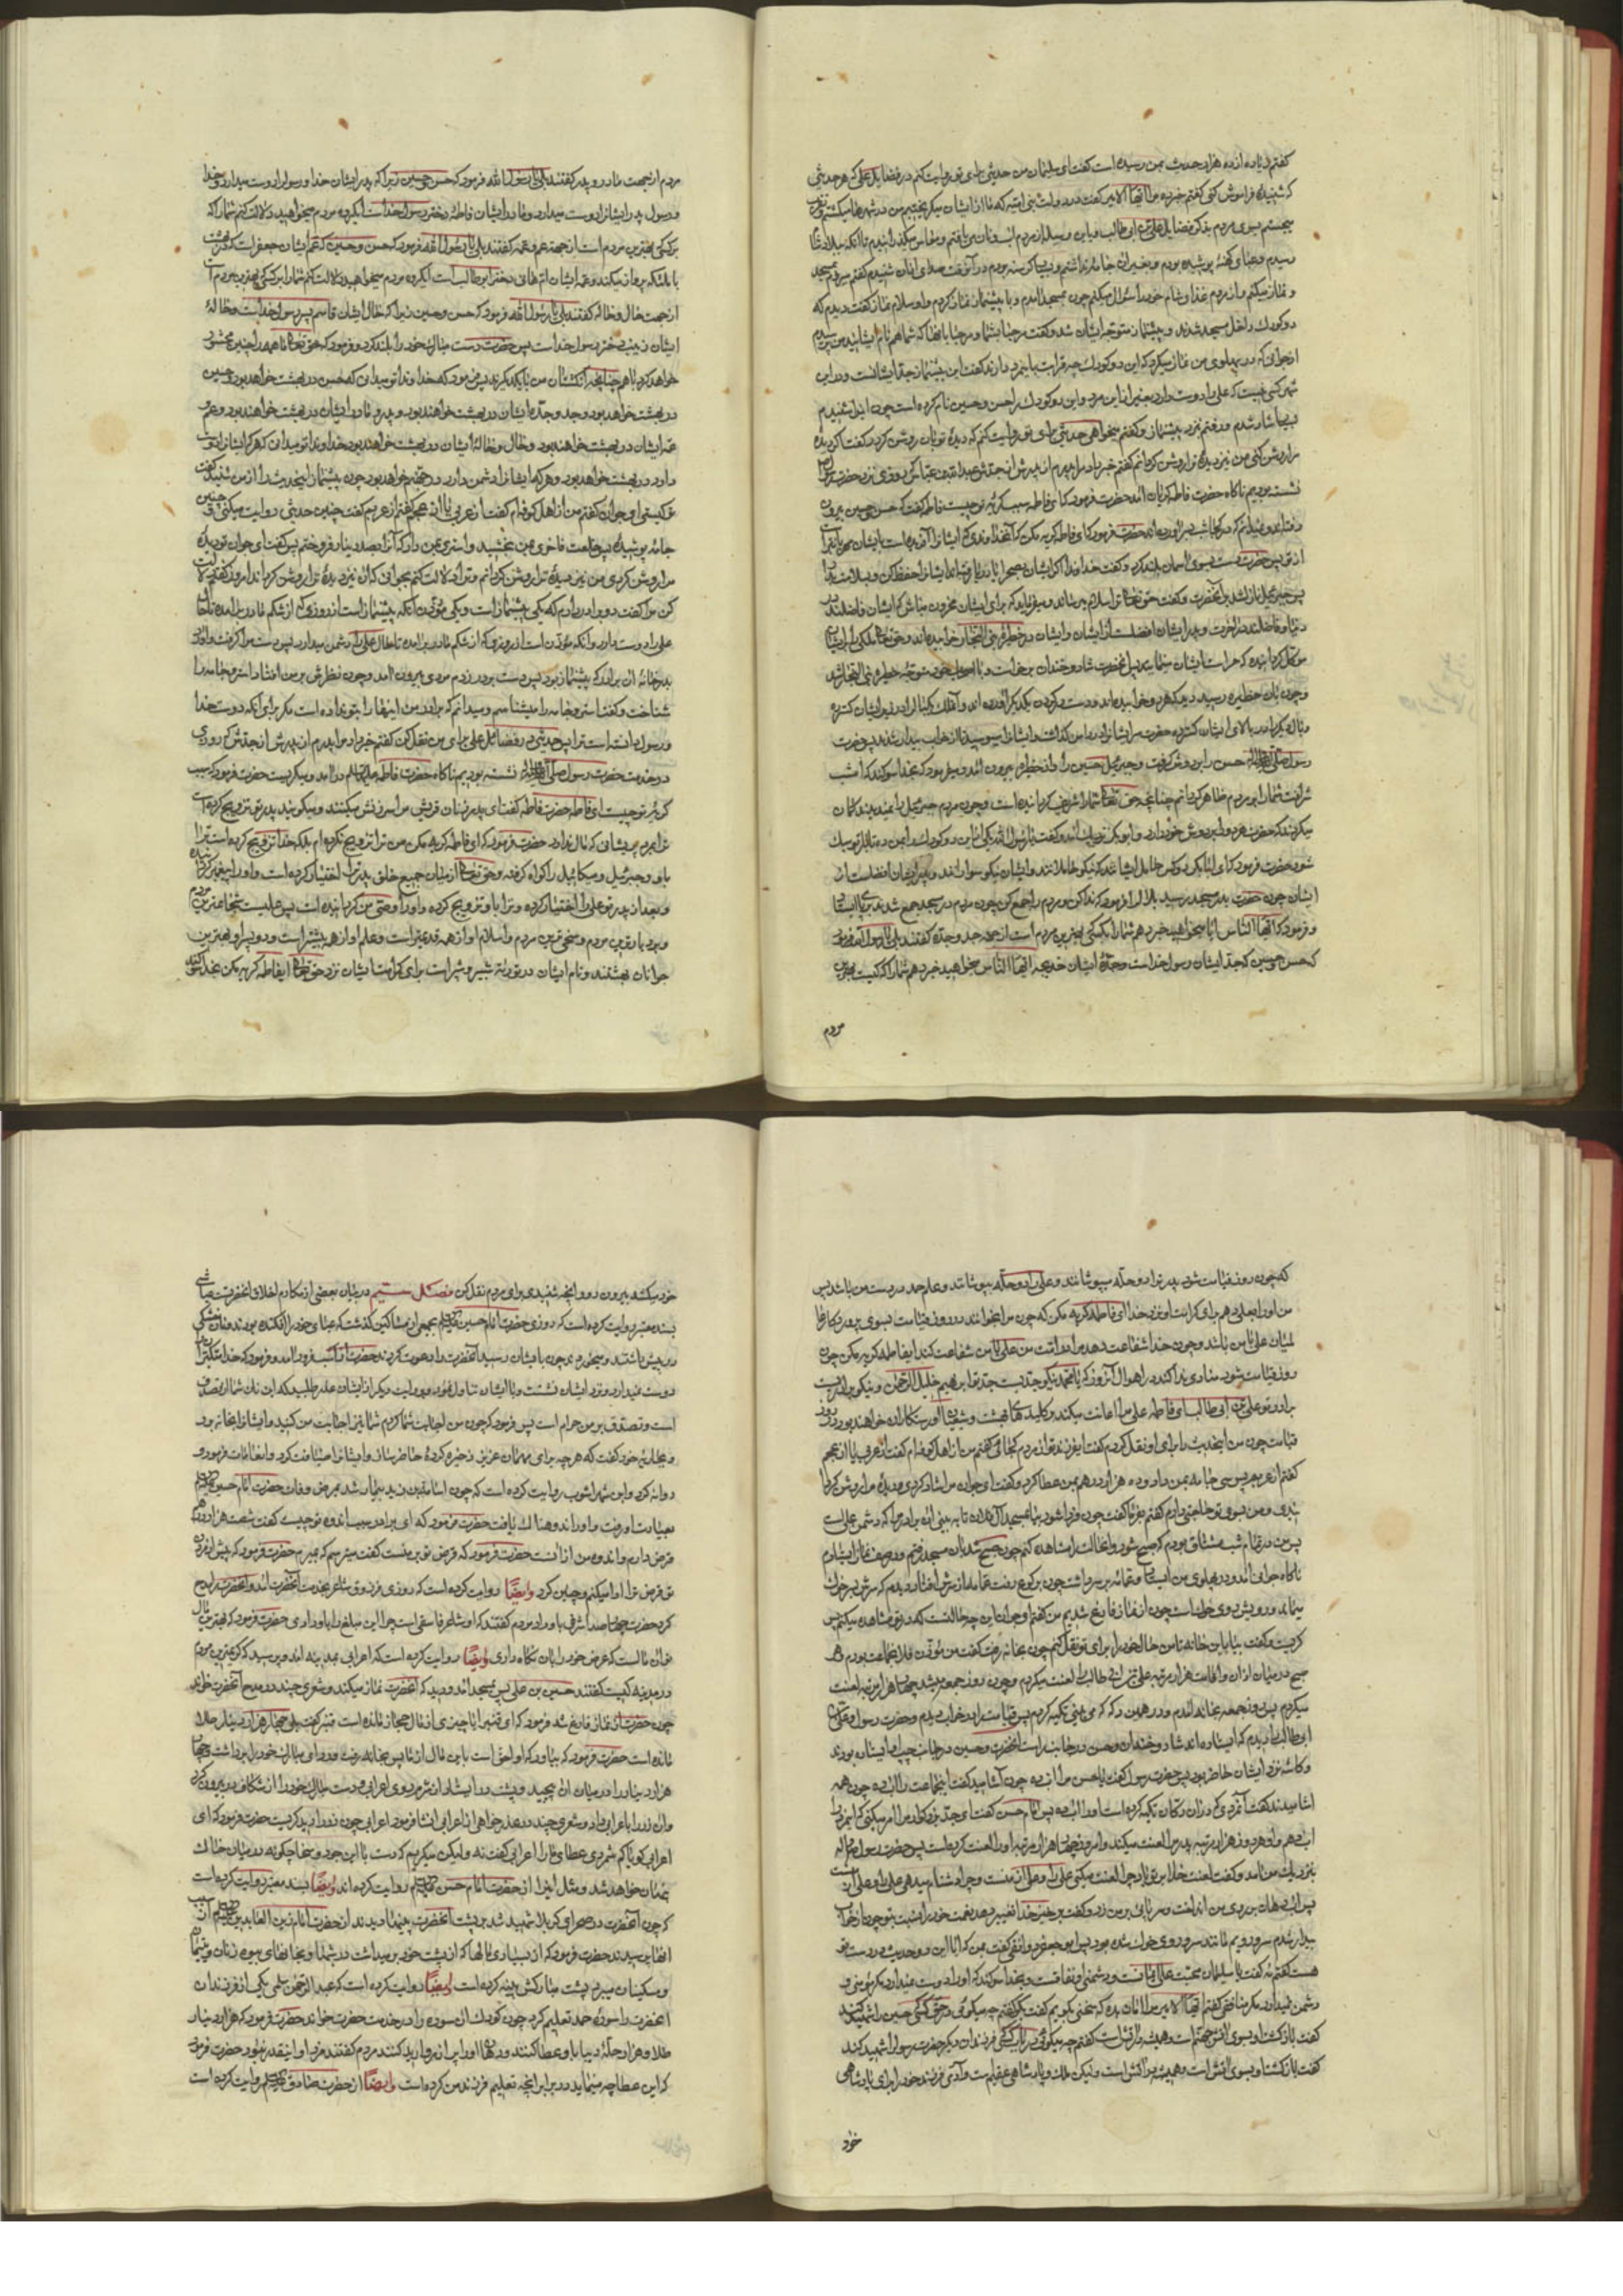 کفتم زیاده از ده هزار حدیث بمن رسیده است کفت ای سلیمان من حدیثی برای تو روایت کنم در فضایل علی که هر حدیثی
که شنیدهٔ فراموش کنی کفتم خبر ده مرا ایها الامیر کفت در دولت بنی امیه که ما از ایشان میکریختیم من در شهرها میکشتم و تقرب
میجستم بسوی مردم بذکر فضایل علی بن ابی طالب
رسیدم و عبای کهنهٔ پوشیده بودم و بغیر از آن جامه نداشتم و بسیار کرسنه بودم در آنوقت صدای اذان شنیدم کفتم میروم بمسجد
و نماز میکنم و از مردم غذا و شام خود را سؤال میکنم چون بمسجد آمدم و با پیشنماز نماز کردم و او سلام نماز کفت دیدم که
دو کودک داخل مسجد شدند و پیشنماز متوجه ایشان شد و کفت مرحبا بشما و مرحبا بآنها که شما هم نام ایشانید من پرسیدم
از جوانی که در پهلوی من نماز میکرد که این دو کودک چه قرابت باینمرد دارند کفت این پیشنماز جد ایشانست و در این
شهر کسی نیست که علی را دوست دارد بغیر از این مرد و این دو کودک را حسن و حسین نام کرده است چون این را شنیدم
بسیار شاد شدم و رفتم نزد پیشنماز و کفتم میخواهی حدیثی برای تو روایت کنم که دیدهٔ تو بآن روشن کردد کفت اکر دیدهٔ
مرا روشن کنی من نیز دیدهٔ ترا روشن کردانم کفتم خبر داد مرا پدرم از پدرش از جدش عبدالله بن عباس که روزی نزد حضرت رسول
نشسته بودیم ناکاه حضرت فاطمه کریان آمد حضرت فرمود که ای فاطمه سبب کریهٔ تو چیست فاطمه کفت که حسن و حسین بیرون
رفته‌اند و نمیدانم که در کجا شب بسر آورده‌اند حضرت فرمود که ای فاطمه کریه مکن که آنخداوندی که ایشانرا آفریده است بایشان مهربانتر است
از تو پس حضرت دست بسوی آسمان بلند کرد و کفت خداوندا اکر ایشان بصحرا یا بدریا رفته‌اند ایشانرا حفظ کن و بسلامت بدار
پس جبرئیل نازل شد بر آنحضرت و کفت حق تعالی ترا سلام میرساند و میفرماید که برای ایشان محزون مباش که ایشان فاضلند در
دنیا و فاضلند در آخرت و پدر ایشان افضلست از ایشان و ایشان در حظیرهٔ بنی النجار خوابیده‌اند و حق تعالی ملکی را بر ایشان
موکل کردانیده که حراست ایشان مینماید پس آنحضرت شاد و خندان برخاست و با اصحاب خود متوجه حظیره بنی النجار شد
و چون بآن حظیره رسید دید که هر دو خوابیده‌اند و دست در کردن یکدیکر آورده‌اند و آن ملک یکبال را در زیر ایشان کسترده
و بال دیکر را بر بالای ایشان کسترده حضرت سر ایشانرا در دامن کذاشت و ایشانرا میبوسید تا از خواب بیدار شدند پس حضرت
رسول صلی الله علیه و آله حسن را بر دوش کرفت و جبرئیل حسین را و از حظیره بیرون آمد و میفرمود که بخدا سوکند که امشب
شرافت شما را بر مردم ظاهر کردانم چنانچه حق تعالی شما را شریف کردانیده است و چون مردم جبرئیل را نمیدیدند کمان
میکردند که حضرت هر دو را بر دوش خود دارد و ابوبکر نزدیک آمد و کفت یا رسول الله یکی از این دو کودک را بمن ده تا بار تو سبک
شود حضرت فرمود که ای ابابکر نیکو کسی حامل ایشان شد که نیکو حاملانند و ایشان نیکو سوارانند و پدر ایشان افضلست از
ایشان چون حضرت بدر مسجد رسید بلال را فرمود که ندا کن و مردم را جمع کن چون مردم در مسجد جمع شدند برپای ایستاد
و فرمود که ایها الناس آیا میخواهید خبر دهم شما را بکسی که بهترین مردم است از جهت جد و جده کفتند بلی یا رسول الله فرمود
که حسن و حسین که جد ایشان رسول خداست و جدهٔ ایشان خدیجه ایها الناس میخواهید خبر دهم شما را که کیست بهترین
مردم
مردم از جهت مادر و پدر کفتند بلی یا رسول الله فرمود که حسن و حسین زیرا که پدر ایشان خدا و رسول را دوست میدارد و خدا
و رسول پدر ایشانرا دوست میدارد و مادر ایشان فاطمه دختر رسول خداست ایکروه مردم میخواهید دلالت کنم شما را که
بر کسی که بهترین مردم است از جهت عم و عمه کفتند بلی یا رسول الله فرمود که حسن و حسین که عم ایشان جعفر است که در بهشت
با ملئکه پرواز میکند و عمه ایشان ام هانی دختر ابوطالب است ایکروه مردم میخواهید دلالت کنم شما را بر کسی که بهترین مردم است
از جهت خال و خاله کفتند بلی یا رسول الله فرمود که حسن و حسین زیرا که خال ایشان قاسم پسر رسول خداست و خالهٔ
ایشان زینب دختر رسول خداست پس حضرت دست مبارک خود را بلند کرد و فرمود که حق تعالی ما همه را چنین محشور
خواهد کرد با هم چنانچه انکشتان من با یکدیکرند پس فرمود که خداوندا تو میدانی که حسن در بهشت خواهد بود و حسین
در بهشت خواهد بود و جد و جدهٔ ایشان در بهشت خواهند بود و پدر و مادر ایشان در بهشت خواهند بود و عم و
عمهٔ ایشان در بهشت خواهند بود و خال و خالهٔ ایشان در بهشت خواهند بود خداوندا تو میدانی که هر که ایشانرا دوست
دارد در بهشت خواهد بود و هر که ایشانرا دشمن دارد در جهنم خواهد بود چون پیشنماز اینحدیث را از من شنید کفت
تو کیستی ای جوان کفتم من از اهل کوفه‌ام کفت از عربی یا از عجم کفتم از عربم کفت چنین حدیثی روایت میکنی و چنین
جامهٔ پوشیدهٔ پس خلعت فاخری بمن بخشید و استری بمن داد که آنرا بصد دینار فروختم پس کفت ای جوان تو دیدهٔ
مرا روشن کردی من نیز دیدهٔ ترا روشن کردانم و ترا دلالت کنم بجوانی که آن نیز دیدهٔ ترا روشن کرداند امروز کفتم دلالت
کن مرا کفت دو برادر دارم که یکی پیشنماز است و یکی مؤذن آنکه پیشنماز است از روزی که از شکم مادر برآمده تا حال
علی را دوست دارد و آنکه مؤذن است از روزی که از شکم مادر برآمده تا حال علی را دشمن میدارد پس دست مرا کرفت و آورد
بدر خانهٔ آن برادر که پیشنماز بود پس دست بر در زدم مردی بیرون آمد و چون نظرش بر من افتاد استر و جامه را
شناخت و کفت استر و جامه را میشناسم و میدانم که برادر من اینها را بتو نداده است مکر برای آنکه دوست خدا
و رسول دانسته است ترا پس حدیثی در فضایل علی برای من نقل کن کفتم خبر داد مرا پدرم از پدرش از جدش که روزی
در خدمت حضرت رسول صلی الله علیه و آله نشسته بودیم ناکاه حضرت فاطمه علیها السلام درآمد و میکریست حضرت فرمود که سبب
کریهٔ تو چیست ای فاطمه حضرت فاطمه کفت ای پدر زنان قریش مرا سرزنش میکنند و میکویند پدر تو تزویج کرده است
ترا بمرد پریشانی که مال ندارد حضرت فرمود که ای فاطمه کریه مکن من ترا تزویج نکرده‌ام بلکه خدا تزویج کرده است ترا
باو و جبرئیل و میکائیل را کواه کرفته و حق تعالی از میان جمیع خلق پدر ترا اختیار کرده است و او را پیغمبر کردانیده
و بعد از پدر تو علی را اختیار کرده و ترا باو تزویج کرده و او را وصی من کردانیده است پس علیست شجاعترین مردم
و بردبارترین مردم و سخی‌ترین مردم و اسلام او از همه قدیمتر است و علم او از همه بیشتر است و دو پسر او بهترین
جوانان بهشتند و نام ایشان در توریة شبر و شبیر است برای کرامت ایشان نزد حق تعالی ایفاطمه کریه مکن بخدا سوکند
که چون روز قیامت شود پدر ترا دو حله بپوشانند و علی را دو حله بپوشانند و علم حمد در دست من باشد پس
من او را بعلی دهم برای کرامت او نزد خدا ای فاطمه کریه مکن که چون مرا بخوانند در روز قیامت بسوی پروردکار
علی با من باشد و چون خدا شفاعت دهد مرا در امت من علی با من شفاعت کند ایفاطمه کریه مکن چون
روز قیامت شود منادی ندا کند در اهوال آنروز که یا محمد نیکو جدیست جد تو ابراهیم خلیل الرحمن و نیکو برادریست
برادر تو علی بن ابی طالب ای فاطمه علی مرا اعانت میکند بر کلیدهای بهشت و شیعیان او رستکاران خواهند بود در روز
قیامت چون من اینحدیث را برای او نقل کردم کفت ایفرزند تو از مردم کجائی کفتم من از اهل کوفه‌ام کفت از عربی یا از عجم
کفتم از عربم پس سی جامه بمن داد و ده هزار درهم بمن عطا کرد و کفت ای جوان مرا شاد کردی و دیدهٔ مرا روشن کردی
کفتم بفرما کفت چون فردا شود بیا بمسجد آل فلان تا به بینی آن برادر مرا که دشمن علی است
پس من در تمام شب مشتاق بودم که صبح شود و آنحالت را مشاهده کنم چون صبح شد بآن مسجد رفتم و در صف نماز ایستادم
ناکاه جوانی آمد و در پهلوی من ایستاد و عمامه بر سر داشت چون برکوع رفت عمامه از سرش افتاد دیدم که سرش بسر خوک
میماند و رویش بروی خوک است چون از نماز فارغ شدیم من کفتم وای بر تو این چه حالتست که در تو مشاهده میکنم پس
کریست و کفت بیا باین خانه تا من حال خود را برای تو نقل کنم چون بخانه رفت کفت من مؤذن فلان جماعت بودم هر
صبح در میان اذان و اقامت هزار مرتبه علی بن ابی طالب را لعنت میکردم و چون روز جمعه میشد چهار هزار مرتبه لعنت
میکردم پس روز جمعه بخانه آمدم و در همین دکه که می بینی تکیه کردم پس قیامت را در خواب دیدم و حضرت رسول و علی بن
ابی طالب را دیدم که ایستاده‌اند شاد و خندان و حسن در جانب راست آنحضرت و حسین در جانب چپ او ایستاده بودند
و کاسه نزد ایشان حاضر بود پس حضرت رسول کفت یا حسن مرا آب ده چون آشامید کفت اینجماعت را آب ده چون همه
آشامیدند کفت آنمردی که در آن دکان تکیه کرده است او را آب ده پس امام حسن کفت ای جد بزرکوار مرا امر میکنی که اینمرد را
آب دهم و او هر روز هزار مرتبه پدر مرا لعنت میکند و امروز چهار هزار مرتبه او را لعنت کرده است پس حضرت رسول
بنزدیک من آمد و کفت لعنت خدا بر تو باد چرا لعنت میکنی علی را و علی از منست و چرا دشنام میدهی علی را و علی از منست
پس آب دهان بر روی من انداخت و سر پائی بر من زد و کفت برخیز خدا تغییر دهد نعمت خود را نسبت بتو چون از خواب
بیدار شدم سر و رویم مانند سر و روی خوک شده بود پس ابو جعفر دوانقی کفت بمن که آیا این دو حدیث در دست تو
هست کفتم نه کفت یا سلیمان محبت علی ایمانست و دشمنی او نفاقست و بخدا سوکند که او را دوست نمیدارد مکر مؤمنی و
دشمن نمیدارد مکر منافقی کفتم ایها الامیر مرا امان بده که سخنی بکویم کفت بکو کفتم چه میکوئی در حق کسی که حسین را شهید کند
کفت بازکشت او بسوی آتش جهنم است و همیشه در آتش است کفتم چه میکوئی در باب کسی که فرزندان دیکر حضرت رسول را شهید کند
کفت بازکشت او بسوی آتش است و همیشه در آتش است و لیکن ملک و پادشاهی عقیم است و آدمی فرزند خود را برای پادشاهی
خود
خود میکشد بیرون رو و آنچه شنیدی برای مردم نقل کن فصل ستیم در بیان بعضی از مکارم اخلاق آنحضرتست عیاشی
بسند معتبر روایت کرده است که روزی حضرت امام حسین علیه السلام بجمعی از مساکین کذشت که عبای خود را افکنده بودند و نان خشکی
در پیش داشتند و میخوردند چون بایشان رسید آنحضرت را دعوت کردند حضرت از اسب فرود آمد و فرمود که خدا متکبران را
دوست نمیدارد و نزد ایشان نشست و با ایشان تناول نمود و بروایت دیکر از ایشان عذر طلبید که این نان شما از تصدق
است و تصدق بر من حرام است پس فرمود که چون من اجابت شما کردم شما نیز اجابت من کنید و ایشانرا بخانه برد
و بجاریهٔ خود کفت که هر چه برای مهمانان عزیز ذخیره کردهٔ حاضر ساز و ایشانرا ضیافت کرد و انعامات فرمود و
روانه کرد و ابن شهر آشوب روایت کرده است که چون اسامة بن زید بیمار شد بمرض وفات حضرت امام حسین علیه السلام
بعیادت او رفت و او را اندوهناک یافت حضرت فرمود که ای برادر سبب اندوه تو چیست کفت شصت هزار درهم
قرض دارم و اندوه من از آنست حضرت فرمود که قرض تو بر منست کفت میترسم که بمیرم حضرت فرمود که پیش از مردن
تو قرض ترا ادا میکنم و چنین کرد وایضًا روایت کرده است که روزی فرزدق شاعر بخدمت آنحضرت آمد و آنحضرت را مدح
کرد حضرت چهار صد اشرفی باو داد مردم کفتند که او شاعر فاسقی است چرا این مبلغ را باو دادی حضرت فرمود که بهترین مال
تو آن مالست که عرض خود را بآن نکاه داری وایضًا روایت کرده است که اعرابی بمدینه آمد و پرسید که کریمترین مردم
در مدینه کیست کفتند حسین بن علی پس بمسجد آمد و دید که آنحضرت نماز میکند و شعری چند در مدح آنحضرت خواند
چون حضرت از نماز فارغ شد فرمود که ای قنبر آیا چیزی از مال حجاز مانده است قنبر کفت بلی چهار هزار دینار طلا
مانده است حضرت فرمود که بیاور که او احق است باین مال از ما پس بخانه رفت و ردای مبارک خود را برداشت و چهار
هزار دینار را در میان آن پیچید و پشت در ایستاد از شرم روی اعرابی و دست مبارک خود را از شکاف در بیرون کرد
و آن زر را باعرابی داد و شعری چند در عذر خواهی از اعرابی انشا فرمود اعرابی چون زر را دید کریست حضرت فرمود که ای
اعرابی کویا کم شمردی عطای ما را اعرابی کفت نه ولیکن میکریم که دست با این جود و سخا چکونه در میان خاک
پنهان خواهد شد و مثل این را از حضرت امام حسن علیه السلام روایت کرده‌اند وایضًا بسند معتبر روایت کرده است
که چون آنحضرت در صحرای کربلا شهید شد بر پشت آنحضرت پینها دیدند از حضرت امام زین العابدین علیه السلام سبب آن
را پرسیدند حضرت فرمود که از بسیاری طعامها که از پشت خود بر میداشت در شبها و بخانهای بیوه زنان و یتیمان
و مسکینان میبرد پشت مبارکش پینه کرده است وایضًا روایت کرده است که عبدالرحمن سلمی یکی از فرزندان
آنحضرت را سورهٔ حمد تعلیم کرد چون کودک آن سوره را در خدمت حضرت خواند حضرت فرمود که هزار دینار
طلا و هزار حلهٔ دیبا باو عطا کنند و دهان او را پر از مروارید کنند مردم کفتند مزد او اینقدر نبود حضرت فرمود
که این عطا چه مینماید در برابر آنچه تعلیم فرزند من کرده است وایضًا از حضرت صادق علیه السلام روایت کرده است